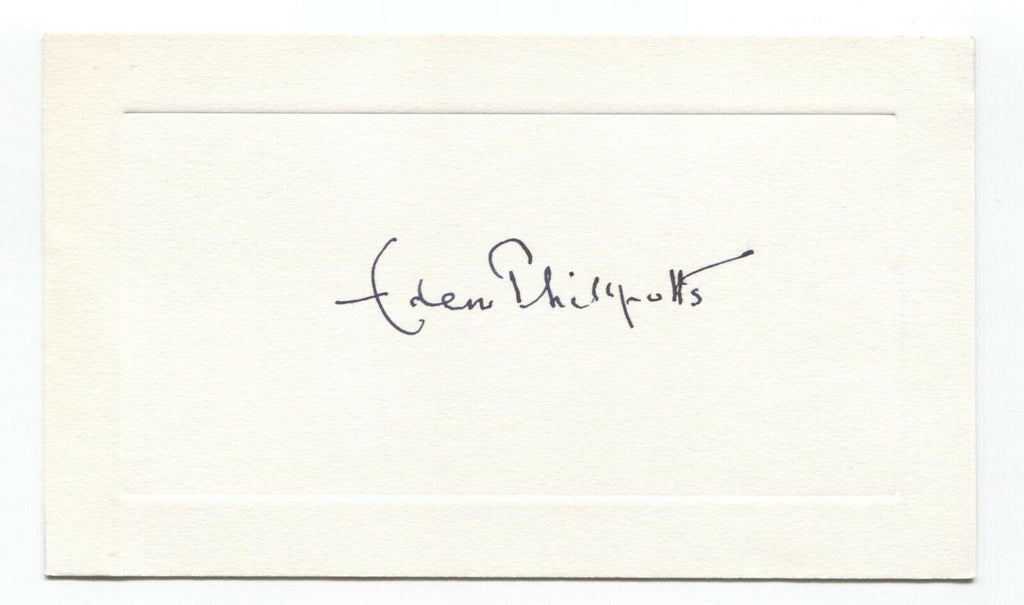 Eden Phillpotts